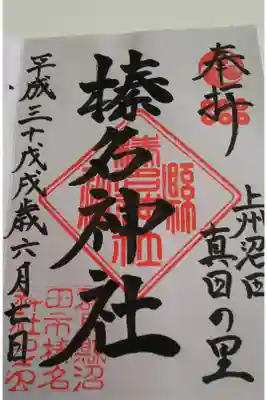 奉拝
上州沼田
真田の里
榛名神社
平成三十戊戌歳六月
榛名神社
縣沼
田市榛名
神社